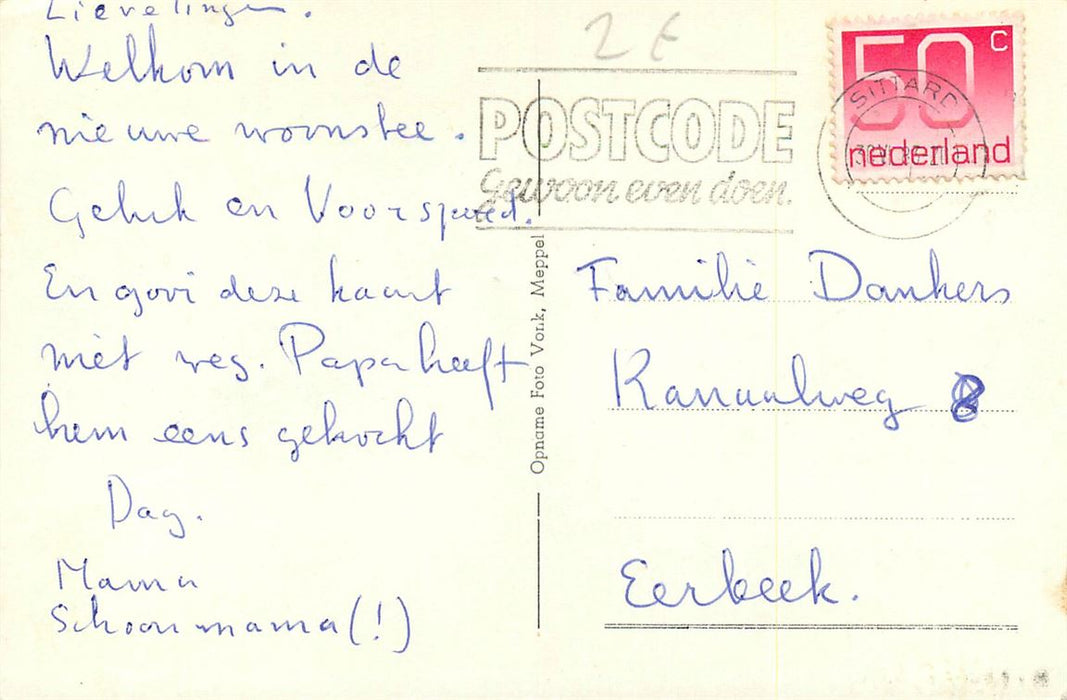 Lievelingen.
Welkom in de
nieuwe woonstee.
Geluk en Voorspoed.
En gooi deze kaart
niet weg. Papa heeft
hem eens gekocht
Dag.
Mama
Schoonmama(!)
2 €
POSTCODE
Gewoon even doen.
SITTARD
50 c
nederland
Opname Foto Vonk, Meppel
Familie Dankers
Kanaalweg 8
Eerbeek.